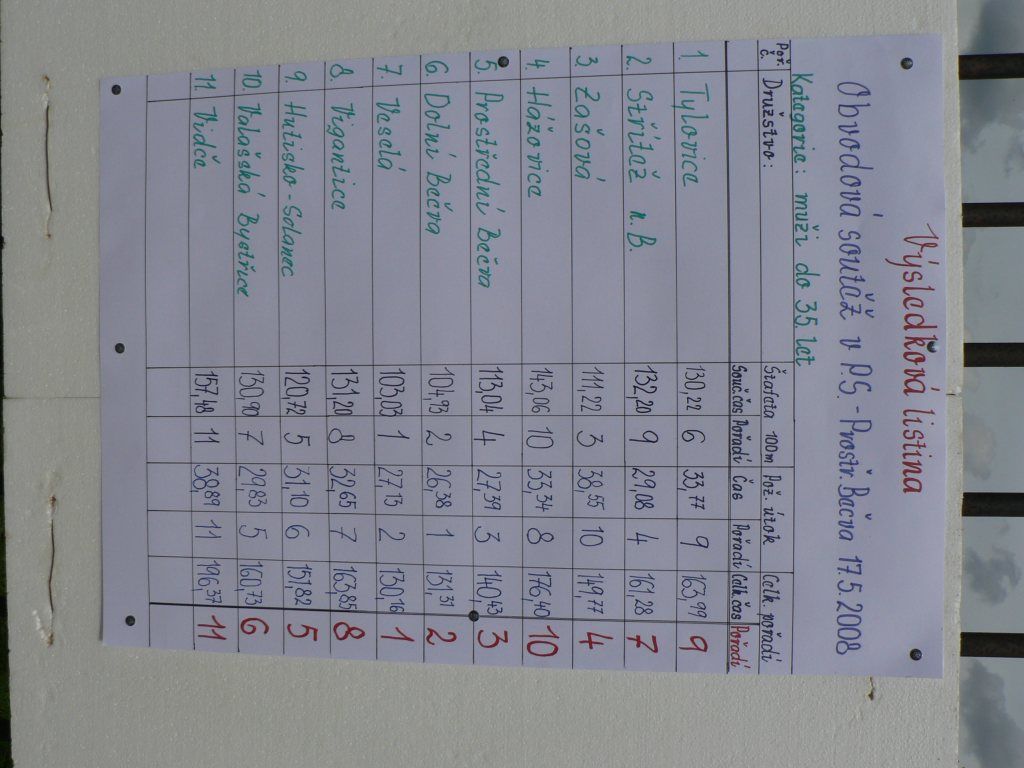 Výsledková listina
Obvodová soutěž v P.S. - Prostř. Bečva 17.5.2008
Kategorie: muži do 35 let
Poř. č. Družstvo: Štafeta 100m Pož. útok Celk. pořadí
Souč. čas Pořadí Čas Pořadí Celk. čas Pořadí
1. Tylovice 130,22 6 33,77 9 163,99 9
2. Střítež n. B. 132,20 9 29,08 4 161,28 7
3. Zašová 111,22 3 38,55 10 149,77 4
4. Hážovice 143,06 10 33,34 8 176,40 10
5. Prostřední Bečva 113,04 4 27,39 3 140,43 3
6. Dolní Bečva 104,93 2 26,38 1 131,31 2
7. Veselá 103,03 1 27,13 2 130,16 1
8. Vigantice 131,20 8 32,65 7 163,85 8
9. Hutisko-Solanec 120,72 5 31,10 6 151,82 5
10. Valašská Bystřice 130,90 7 29,83 5 160,73 6
11. Vidče 157,48 11 38,89 11 196,37 11